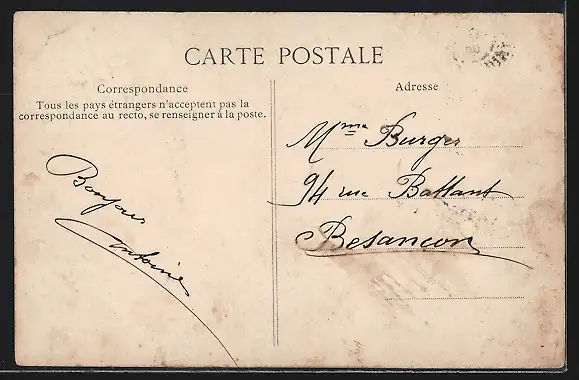 CARTE POSTALE
Correspondance
Tous les pays étrangers n'acceptent pas la
correspondance au recto, se renseigner à la poste.
Bonjour
Antoine
Adresse
Mme Burger
94 rue Battant
Besancon